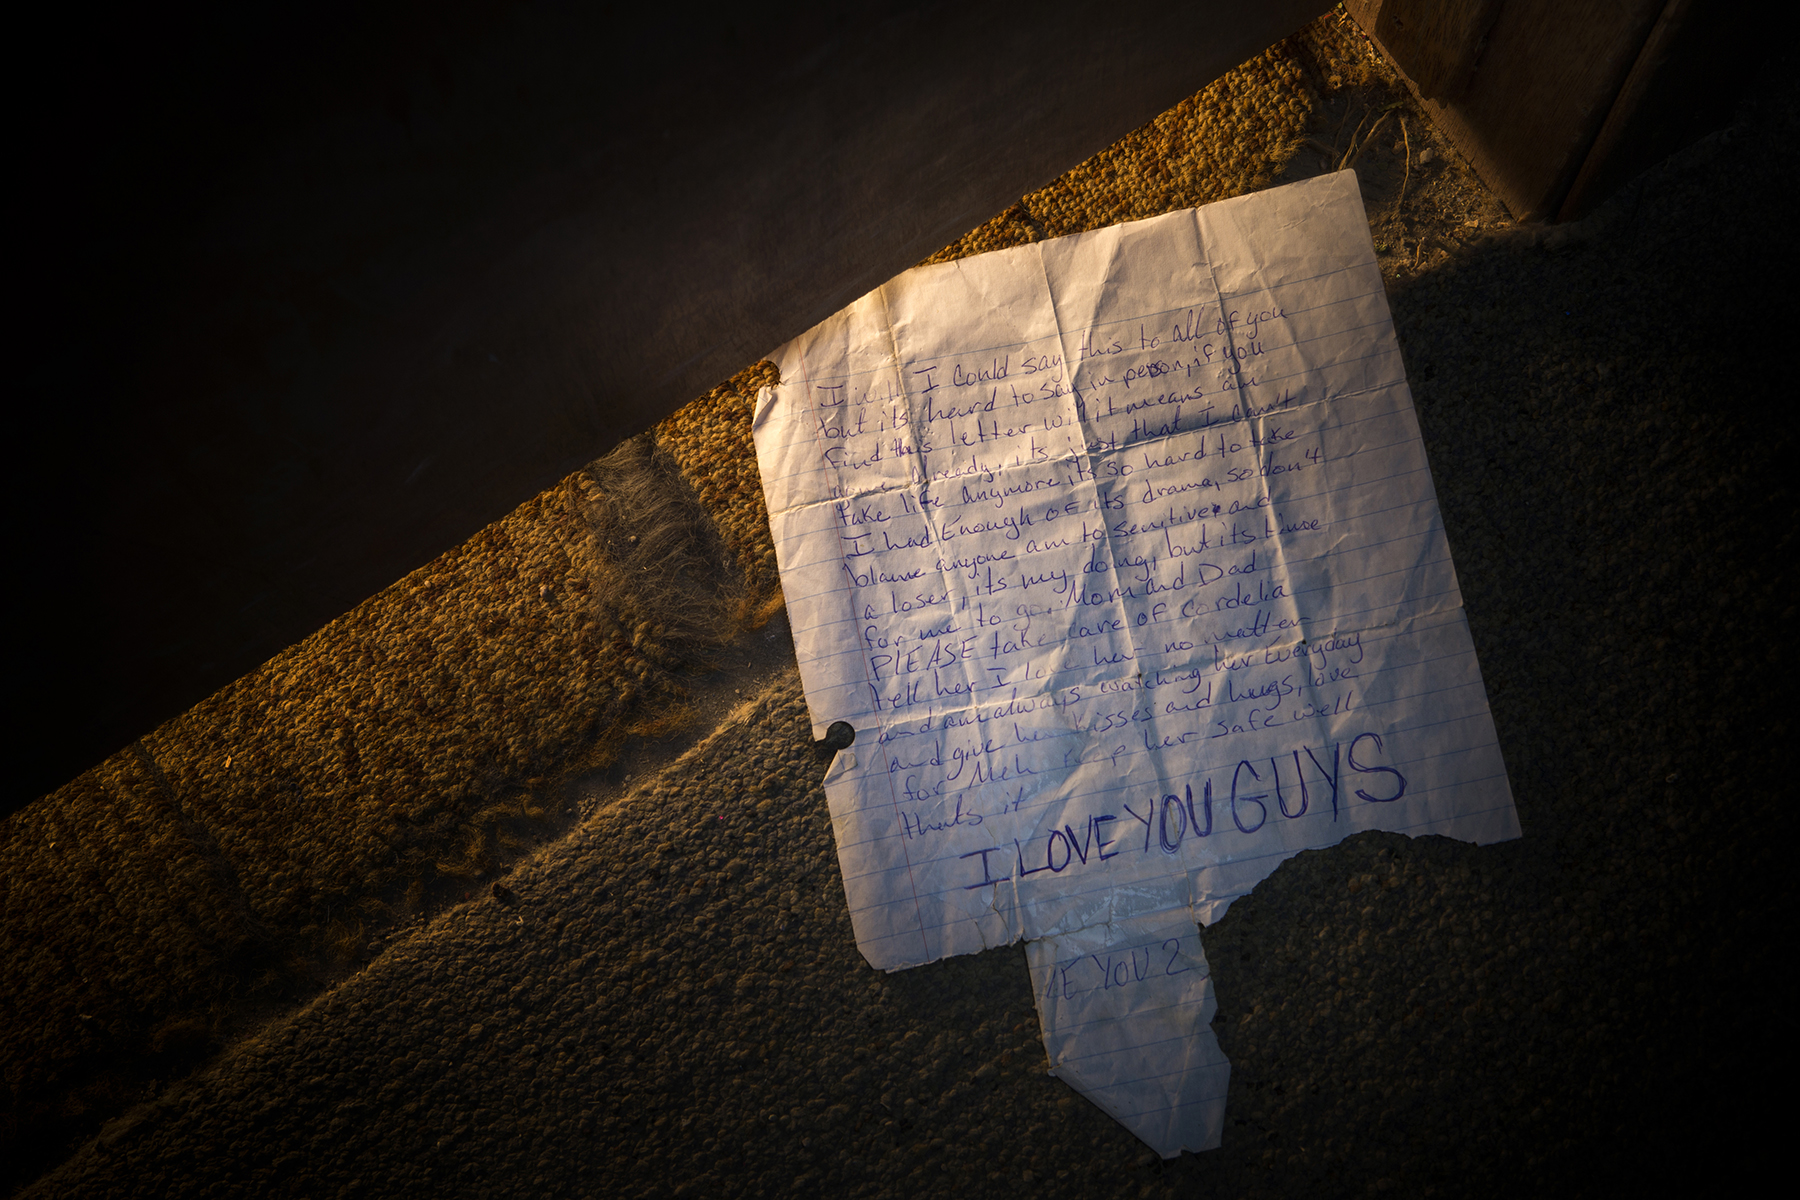 I I could say this to all of you
but its heard to say in person, if you
find this letter will it means am
already, its just that I can't
take life anymore, its so hard to take
I had Enough of its drama, so don't
blame anyone am to senitive and
a loser, its my doing, but its time
for me to go, Mom and Dad
PLEASE take care of Cordelia
tell her I love her no matter
and am always watching her Everyday
and give her kisses and hugs, love
for Meh keep her safe well
thats it
I LOVE YOU GUYS
YOU 2